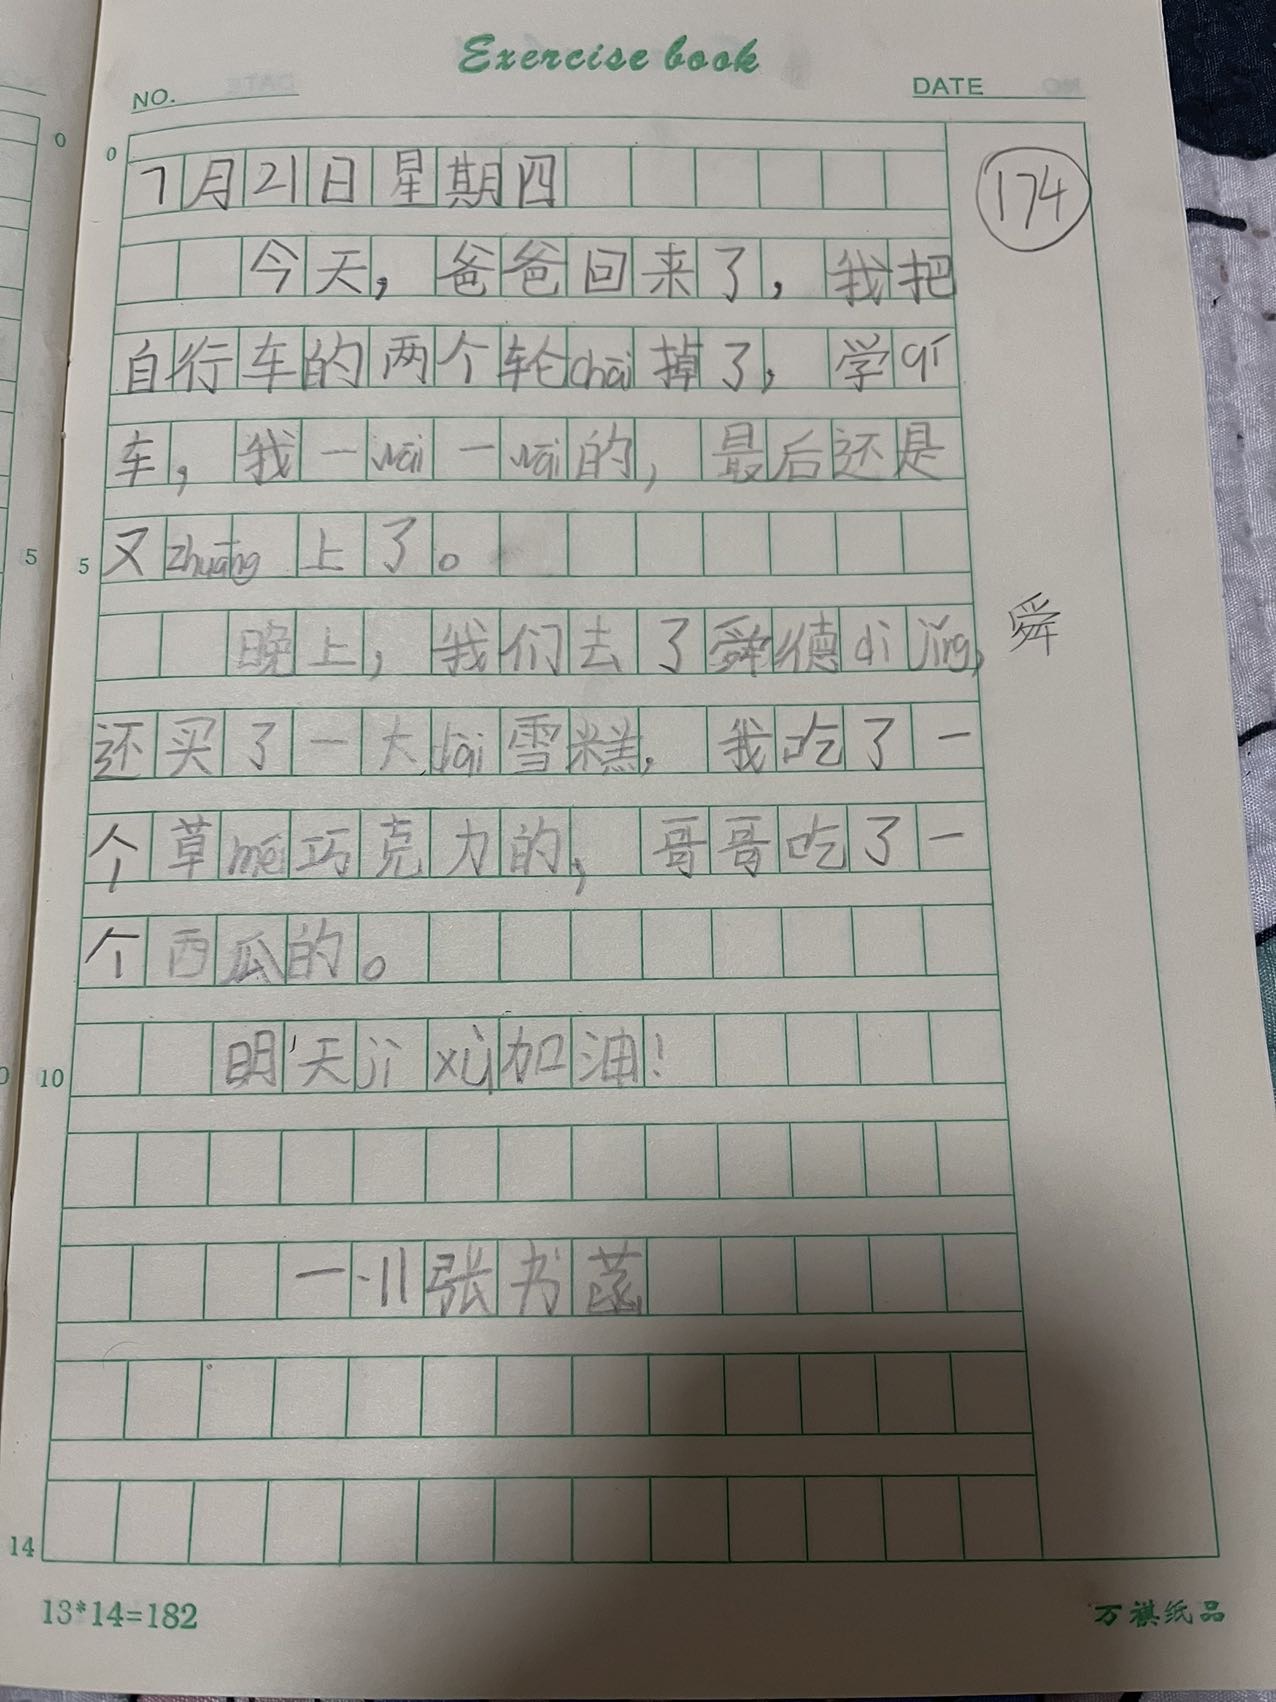 Exercise book
NO. DATE
0 0
7月21日星期四
174
今天，爸爸回来了，我把
自行车的两个轮chāi掉了，学qí
车，我一wāi一wāi的，最后还是
5 5 又zhuāng上了。
晚上，我们去了舜德dì jǐng，
舜
还买了一大dài雪糕，我吃了一
个草méi巧克力的，哥哥吃了一
个西瓜的。
10 明天jì xù加油！
一·11张书菡
14
13*14=182
万祺纸品